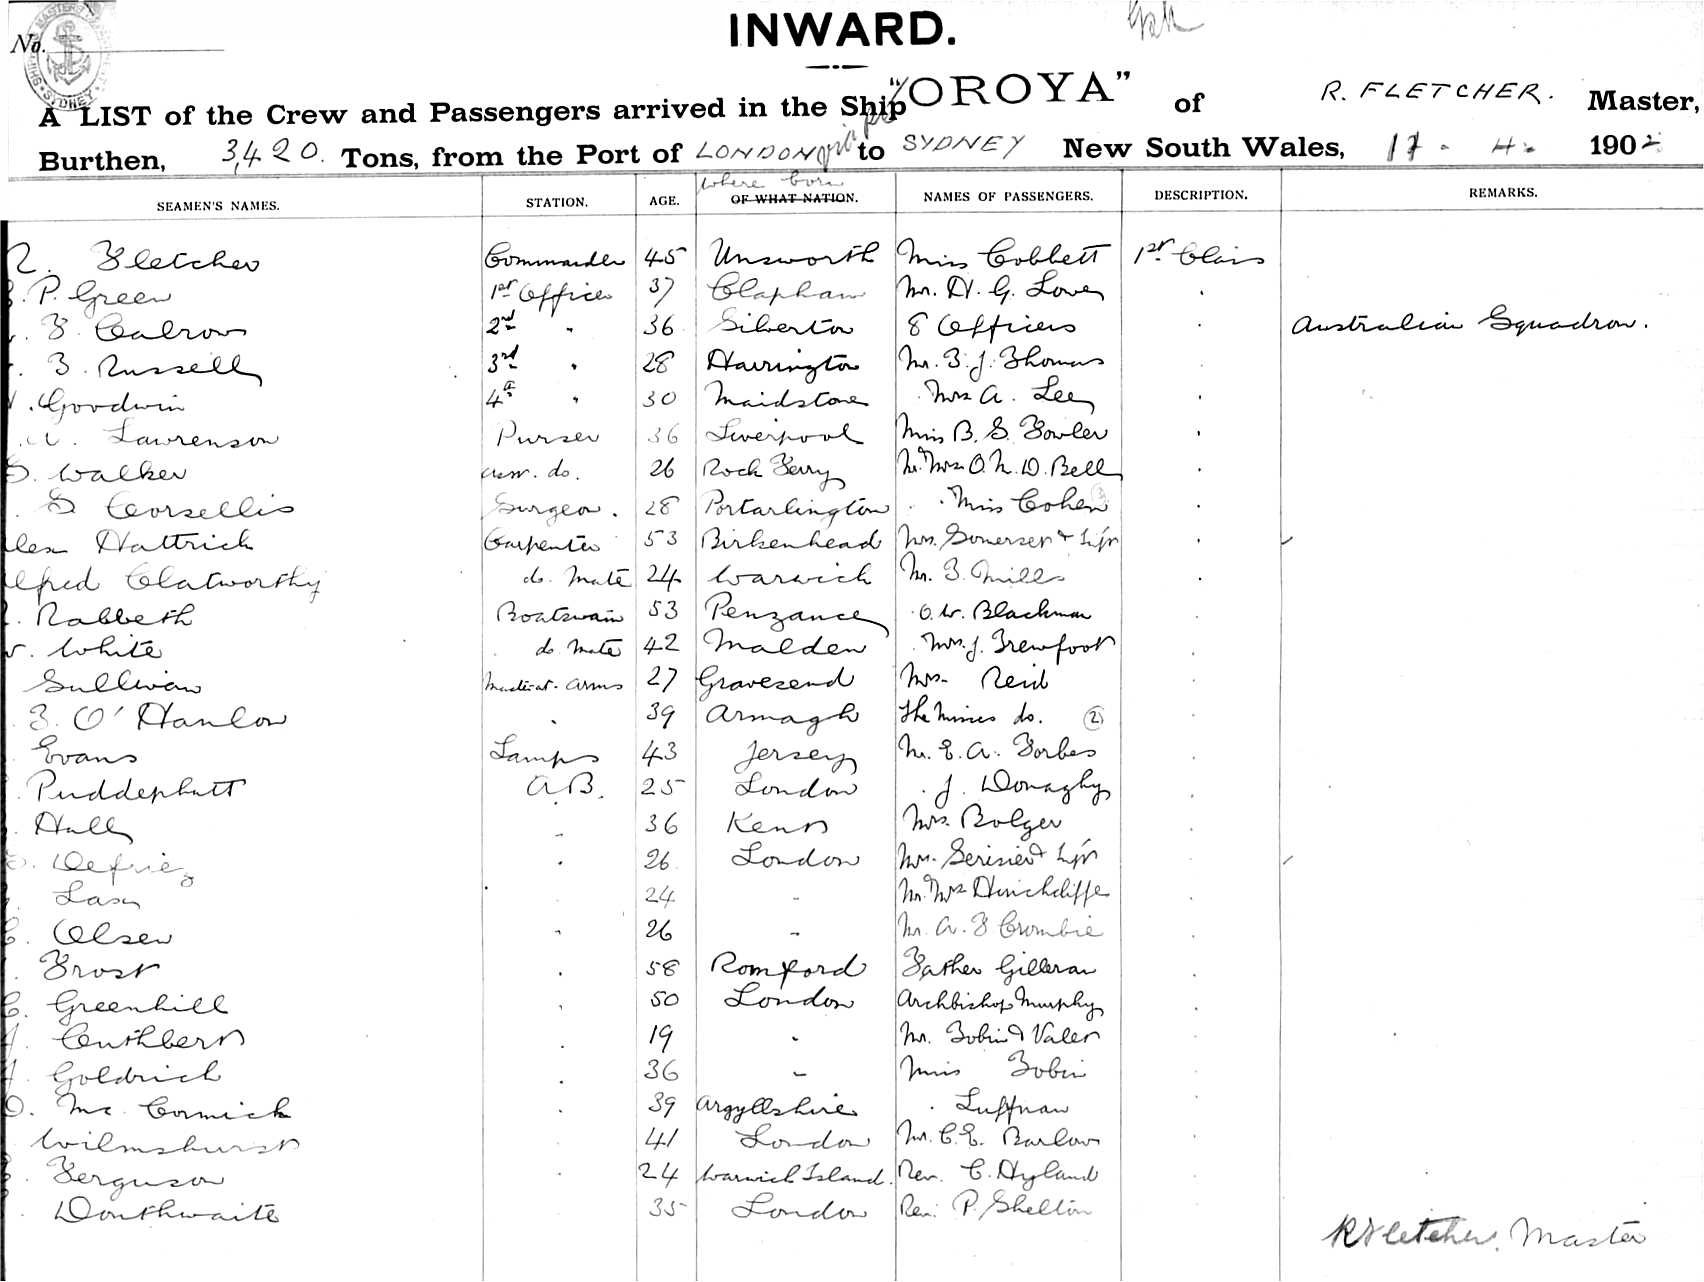 INWARD.
No.
A LIST of the Crew and Passengers arrived in the Ship "OROYA" of R. FLETCHER. Master,
Burthen, 3,420. Tons, from the Port of LONDON to SYDNEY New South Wales, 17 - 4 - 1902
where born
SEAMEN'S NAMES. STATION. AGE. OF WHAT NATION. NAMES OF PASSENGERS. DESCRIPTION. REMARKS.
R. Fletcher Commander 45 Unsworth Miss Cobbett 1st Class
P. Green 1st Officer 37 Clapham Mr. H. G. Lower "
F. Calrow 2nd " 36 Silverton 8 Officers " Australian Squadron.
T. Russell 3rd " 28 Harrington Mr. T. J. Thomas "
Goodwin 4th " 30 Maidstone Mrs A. Lee "
Lawrenson Purser 36 Liverpool Miss B. S. Fowler "
Walker Assr. do. 26 Rock Ferry Mr. Mrs O. N. D. Bell "
G Corsellis Surgeon. 28 Portarlington " Miss Cohen "
Alex Hattrick Carpenter 53 Birkenhead Mrs. Somerset & Inft "
Alfred Clatworthy do. Mate 24 Warwick Mr. T. Mills "
Rabbeth Boatswain 53 Penzance " O. W. Blackman "
White do Mate 42 Malden " Mrs. J. Trewfoot "
Sullivan Master-at-arms 27 Gravesend Mrs. Reid "
T. O'Hanlon " 39 Armagh The Misses do. (2) "
Evans Lamps 43 Jersey Mr. E. A. Forbes "
Puddephatt A.B. 25 London " J. Donaghy "
Hall " 36 Kent Mrs. Bolger "
Defriez " 26 London Mrs. Serisier & Inft "
" 24 " Mr. Mrs Hinchcliffe "
Olsen " 26 " Mr. A. F Crombie "
Frost " 58 Romford Father Gilleran "
Greenhill " 50 London Archbishop Murphy "
Cuthbert " 19 " Mr. Tobin & Valet "
Goldrich " 36 " Miss Tobin "
D. Mc Cormick " 39 Argyllshire " Luffman "
Wilmshurst " 41 London Mr. C. E. Barlow "
Ferguson " 24 Warwick Island. Rev. C. Hyland "
Douthwaite " 35 London Rev. P. Shelton
R Fletcher. Master